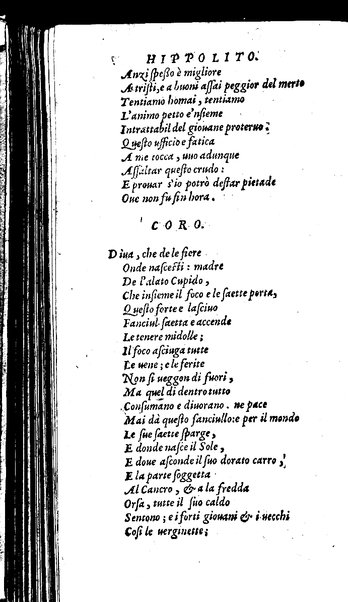 HIPPOLITO.
Anzi ſpeſto è migliore
A triſti, e a buoni aſſai peggior del merto
Tentiamo homai, tentiamo
L'animo petto e'nſieme
Intrattabil del giouane proteruo:
Queſto ufficio e fatica
A me tocca, uuo adunque
Aſſaltar queſto crudo:
E prouar s'io potrò deſtar pietade
Oue non fu ſin hora.
CORO.
Diua, che de le fiere
Onde naſceſti: madre
De l'alato Cupido,
Che inſieme il foco e le ſaette porta,
Queſto forte e laſciuo
Fanciul ſaetta e accende
Le tenere midolle;
Il foco aſciuga tutte
Le uene; e le ferite
Non ſi ueggon di fuori,
Ma quel di dentro tutto
Conſumano e diuorano. ne pace
Mai dà queſto fanciullo: e per il mondo
Le ſue ſaette ſparge,
E donde naſce il Sole,
E doue aſconde il ſuo dorato carro,
E la parte ſoggetta
Al Cancro, & a la fredda
Orſa, tutte il ſuo caldo
Sentono; e i forti giouani & i uecchi
Coſi le uerginette;